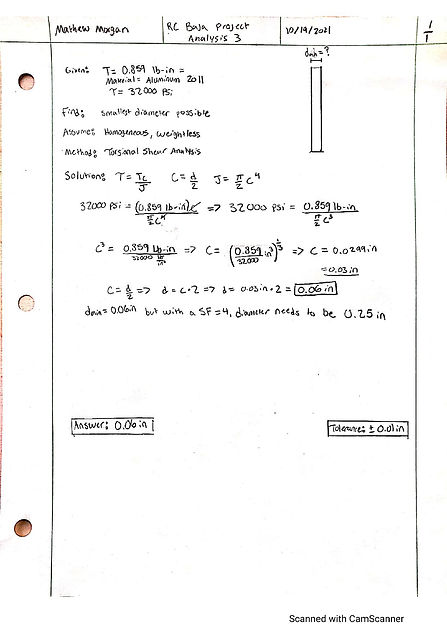 Mathew Morgan
RC Baja Project
Analysis 3
10/19/2021
1/1
dmin = ?
Given: T = 0.859 lb-in =
Material = Aluminum 2011
τ = 32000 psi
Find: smallest diameter possible
Assume: Homogeneous, Weightless
Method: Torsional Shear Analysis
Solution: τ = Tc/J C = d/2 J = π/2 C⁴
32000 psi = (0.859 lb-in)c / π/2 C⁴ => 32000 psi = 0.859 lb-in / π/2 C³
C³ = 0.859 lb-in / 32000 lb/in² => C = (0.859/32000 in³)^1/3 => C = 0.0299 in
= 0.03 in
C = d/2 => d = C·2 => d = 0.03in·2 = 0.06 in
dmin = 0.06in but with a SF = 4, diameter needs to be 0.25 in
Answer: 0.06 in
Tolerance: ± 0.01in
Scanned with CamScanner